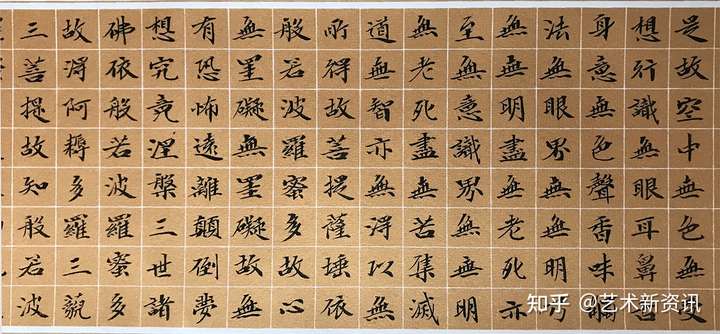 是故空中無色無受
想行識無眼耳鼻舌
身意無色聲香味觸
法無眼界無無明
無無明盡無老死亦
至無意識界無無明
無老死盡無苦集滅
道無智亦無得以無
所得故菩提薩埵依
般若波羅蜜多故心
無罣礙無罣礙故無
有恐怖遠離顛倒夢
想究竟涅槃三世諸
佛依般若波羅蜜多
故得阿耨多羅三藐
三菩提故知般若波
知乎 @艺术新资讯